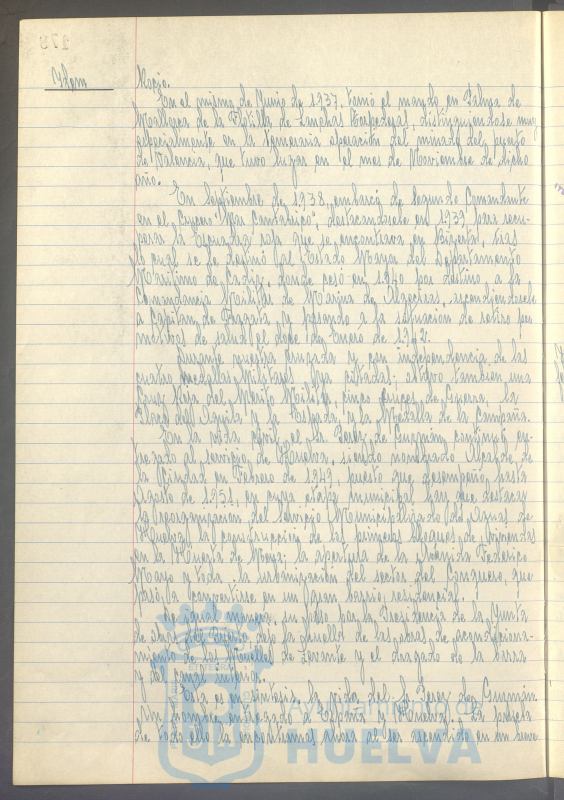 178
Idem
Rocjo.
En el mismo de Junio de 1937, tomó el mando en Palma de
Mallorca de la Flotilla de Lanchas Torpederas, distinguiendose muy
especialmente en la temeraria operación del minado del puerto
de Valencia, que tuvo lugar en el mes de Noviembre de dicho
año.
En Septiembre de 1938, embarcó de Segundo Comandante
en el Crucero "Mar Cantabrico", destacandosele en 1939 para recu-
perar la Escuadra roja que se encontraba en Bizerta, tras
lo cual se le destinó al Estado Mayor del Departamento
Maritimo de Cadiz, donde cesó en 1940 por destino a la
Comandancia Militar de Marina de Algeciras, ascendiendosele
a Capitan de Fragata y pasando a la situación de retiro por
motivos de salud el doce de Enero de 1942.
Durante nuestra Cruzada y con independencia de las
cuatro Medallas Militares ya citadas, obtuvo tambien una
Cruz Roja del Merito Militar, cinco Cruces de Guerra, la
Placa del Aguila y la Espada, y la Medalla de la Campaña.
En la vida civil, el Sr. Perez de Guzmán continuó en-
tregado al servicio de Huelva, siendo nombrado Alcalde de
la Ciudad en Febrero de 1949, puesto que desempeñó hasta
Agosto de 1951, en cuya etapa municipal hay que destacar
la reorganización del Servicio Municipalizado de Aguas de
Huelva; la construcción de los primeros bloques de viviendas
en la Huerta de Mena; la apertura de la Avenida Federico
Mayo y toda la urbanización del sector del Conquero, que
pasó a convertirse en un gran barrio residencial.
De igual manera, su paso por la Presidencia de la Junta
de Obras del Puerto dejó la huella de las obras de acondiciona-
miento de los Muelles de Levante y el dragado de la barra
y del canal interior.
Esta es en sintesis la vida del Sr. Perez de Guzmán.
Un hombre entregado a España y Huelva. La prueba
de todo ello la encontramos ahora al ser ascendido en un breve
Ayuntamiento de
HUELVA